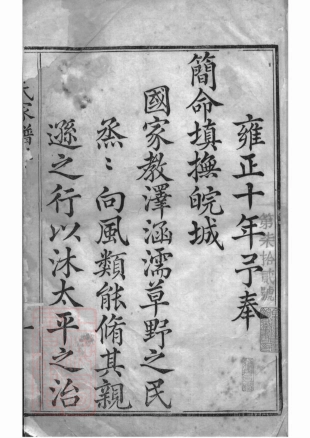 雍正十年予奉
簡命填撫皖城
國家教澤涵濡草野之民
烝〻向風類能脩其親
遜之行以沐太平之治
氏家譜
一